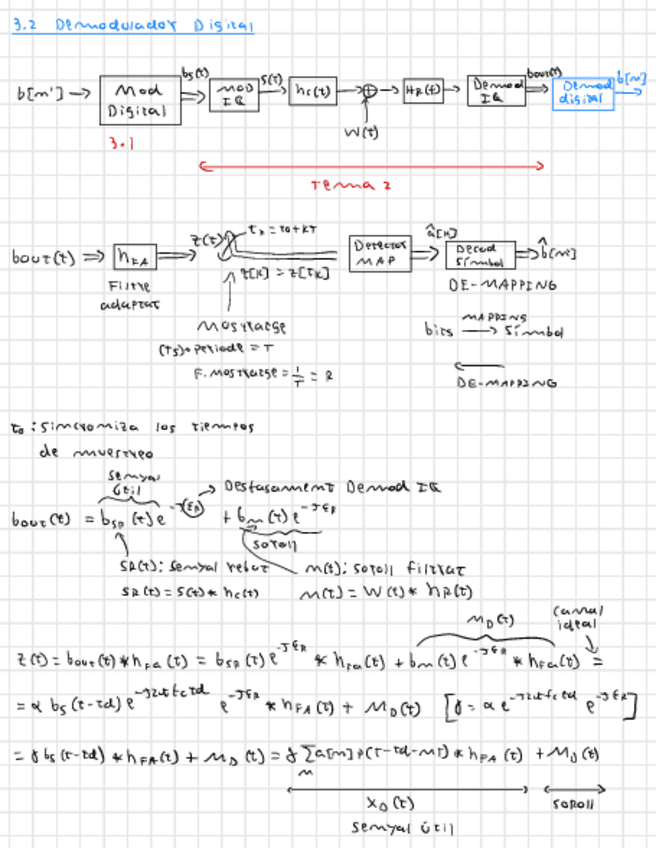 3.2 Demodulador Digital
b[m'] → Mod Digital ⇒ bs(t) Mod IQ → s(t) hc(t) → ⊕ → HR(f) → Demod IQ ⇒ bout(t) Demod digital → b[m]
W(t)
3.1
Tema 2
bout(t) ⇒ hFA ⇒ z(t) tk = t0+kT Detector MAP ⇒ â[k] Decod Símbol ⇒ b̂[m]
z[k] = z[tk]
Filtre adaptat
DE-MAPPING
Mostratge
MAPPING
bits → Símbol
(Ts) periode = T
F. mostratge = 1/T = R
←
DE-MAPPING
t0 : Sincroniza los tiempos
de muestreo
senyal útil
Desfasament Demod IQ
bout(t) = bSR(t) e^-jεR + bm(t) e^-jεR
soroll
SR(t): senyal rebut m(t): soroll filtrat
SR(t) = S(t) * hc(t) m(t) = W(t) * hR(t)
MD(t) Canal ideal
z(t) = bout(t) * hFA(t) = bSR(t) e^-jεR * hFA(t) + bm(t) e^-jεR * hFA(t) =
= α bs(t-td) e^-j2πfc td e^-jεR * hFA(t) + MD(t) [γ = α e^-j2πfc td e^-jεR]
= γ bs(t-td) * hFA(t) + MD(t) = γ Σ a[m] p(t-td-mt) * hFA(t) + MD(t)
m
XD(t) soroll
senyal útil